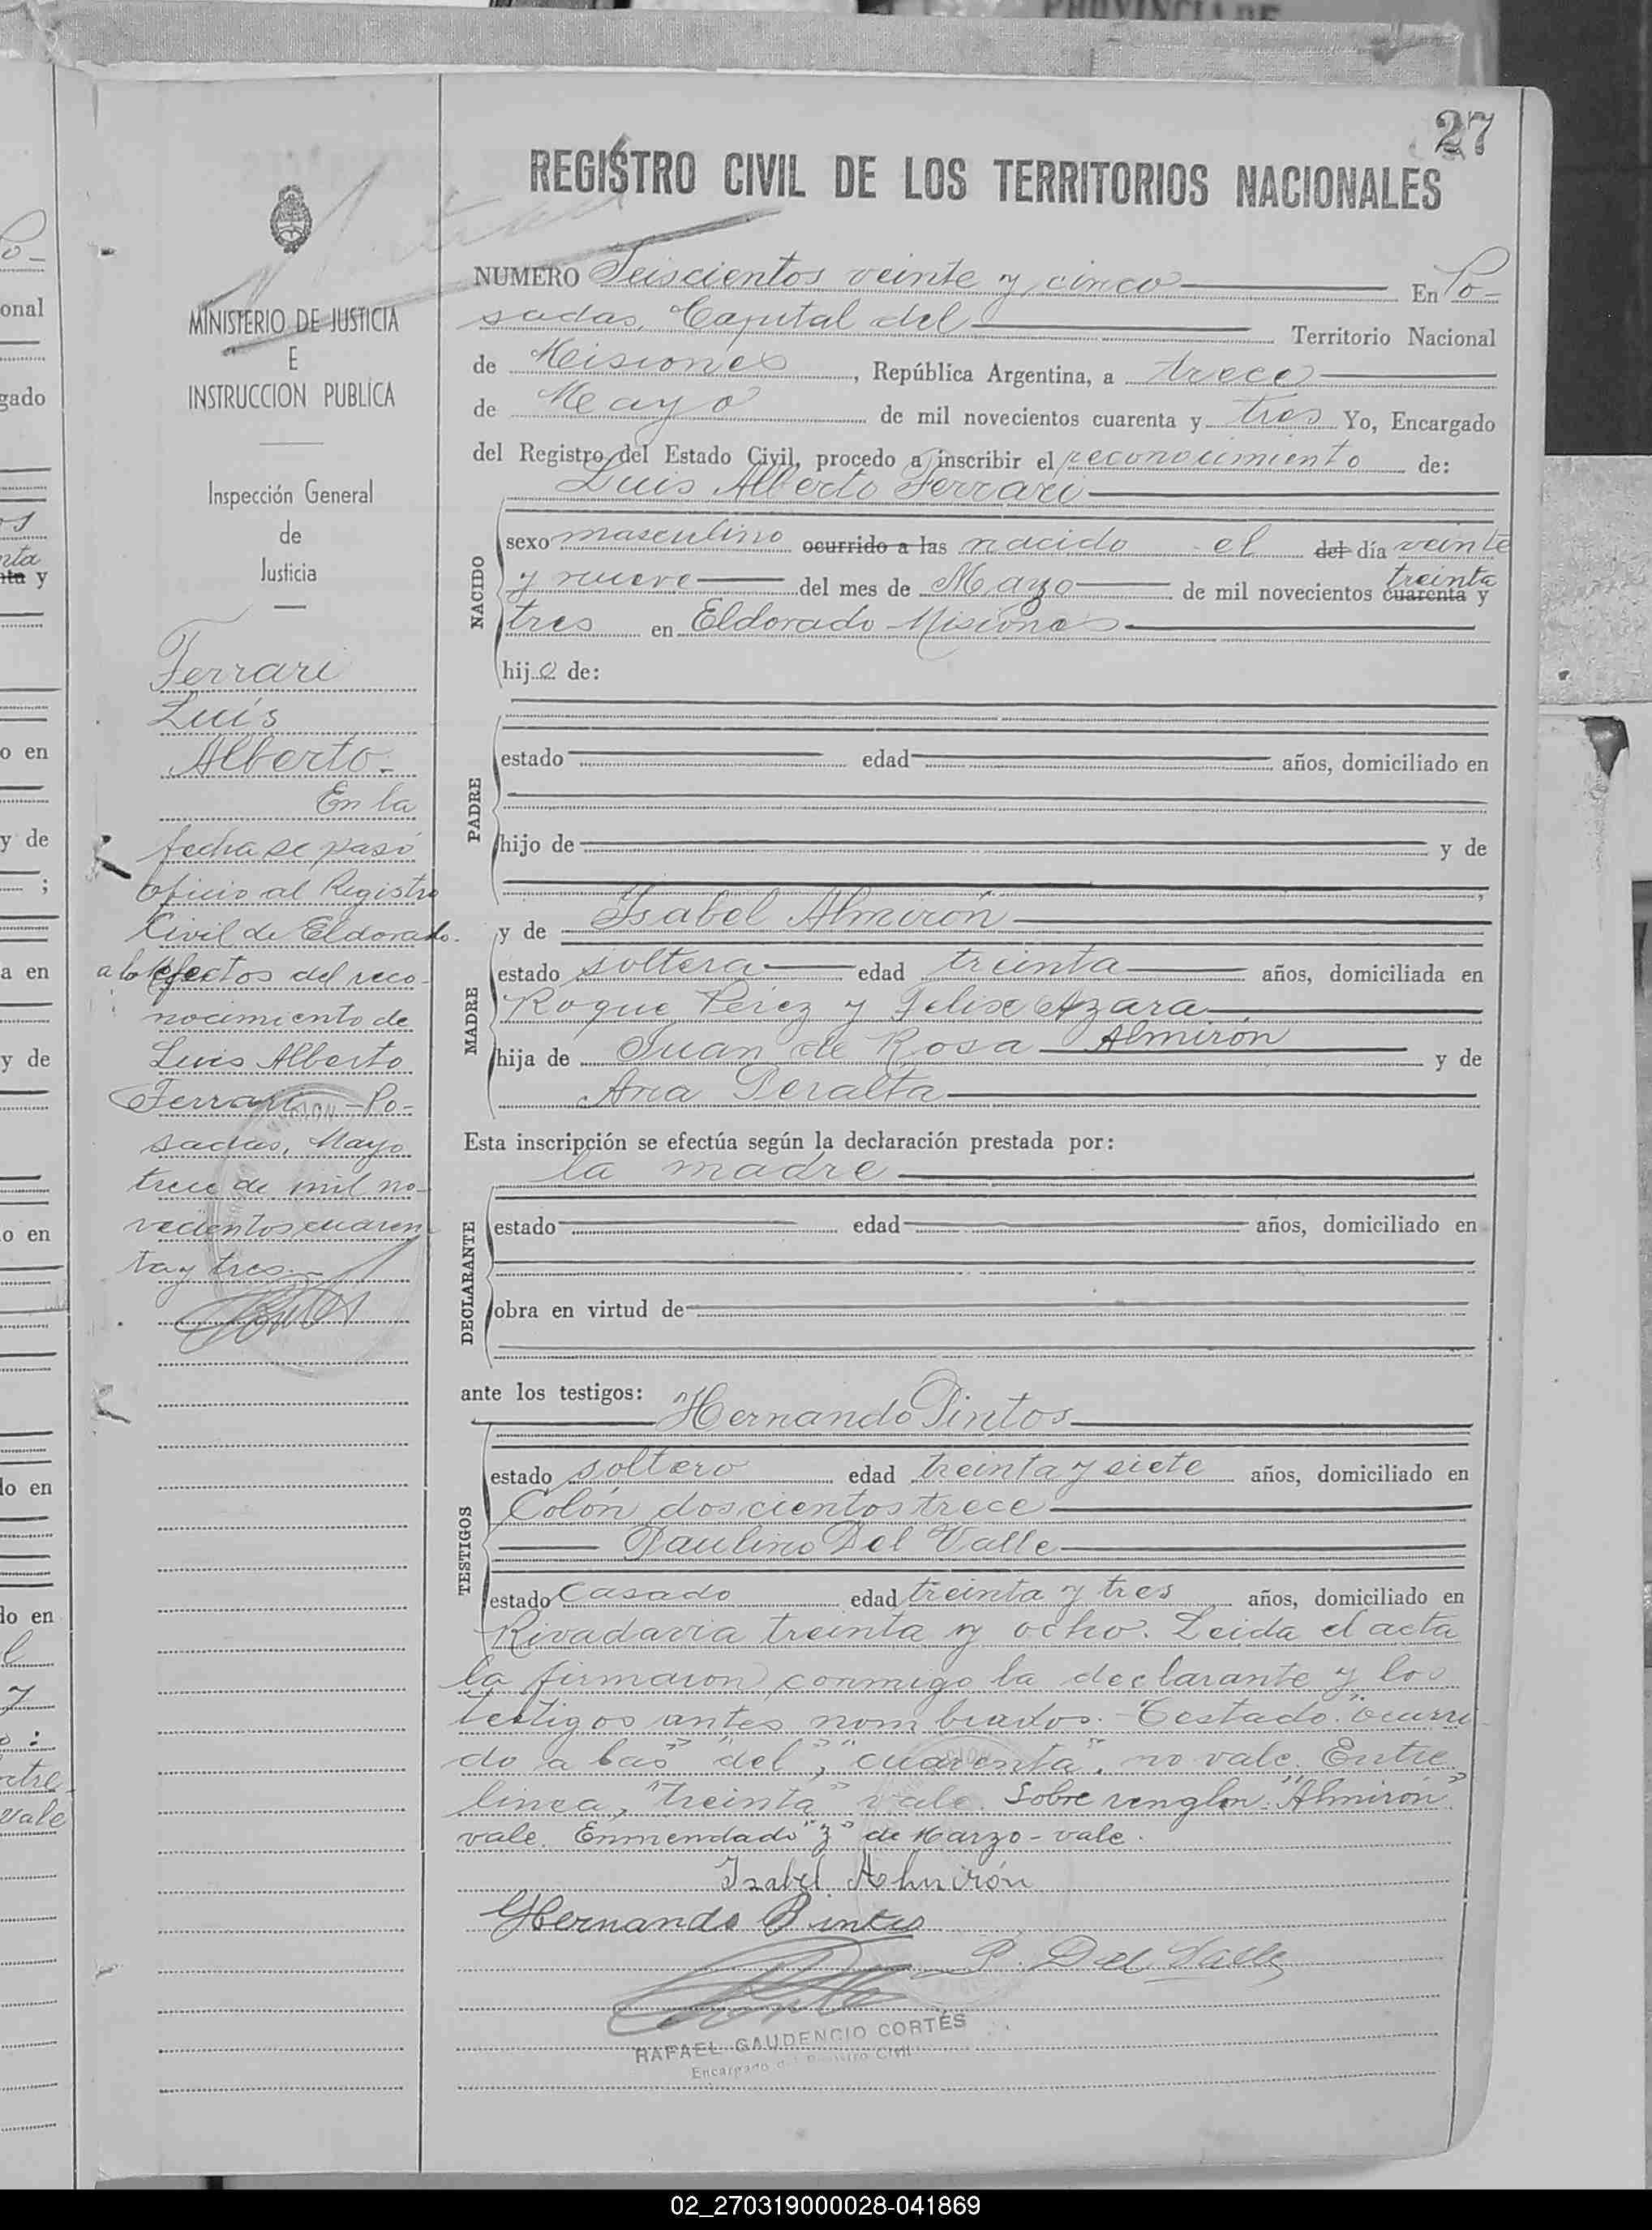 PROVINCIA DE
27
REGISTRO CIVIL DE LOS TERRITORIOS NACIONALES
MINISTERIO DE JUSTICIA
E
INSTRUCCION PUBLICA
Inspección General
de
Justicia
Ferrari
Luís
Alberto.
En la
fecha se pasó
oficio al Registro
Civil de Eldorado.
a los efectos del reco-
nocimiento de
Luis Alberto
Ferrari - Po-
sadas, Mayo
trece de mil no-
vecientos cuaren-
ta y tres.-
NUMERO Seiscientos veinte y cinco En Po-
sadas, Capital del Territorio Nacional
de Misiones, República Argentina, a trece
de Mayo de mil novecientos cuarenta y tres Yo, Encargado
del Registro del Estado Civil, procedo a inscribir el reconocimiento de:
Luis Alberto Ferrari
NACIDO
sexo masculino ocurrido a las nacido el del día veinte
y nueve del mes de Mayo de mil novecientos cuarenta treinta y
tres en Eldorado-Misiones
hijo de:
PADRE
estado edad años, domiciliado en
hijo de y de
;
y de Isabel Almirón
MADRE
estado soltera edad treinta años, domiciliada en
Roque Pérez y Felix Azara
hija de Juan de Rosa Almirón y de
Ana Peralta
Esta inscripción se efectúa según la declaración prestada por:
la madre
DECLARANTE
estado edad años, domiciliado en
obra en virtud de
ante los testigos:
Hernando Pintos
TESTIGOS
estado soltero edad treinta y siete años, domiciliado en
Colón doscientos trece
Paulino Del Valle
estado casado edad treinta y tres años, domiciliado en
Rivadavia treinta y ocho. Leida el acta
la firmaron conmigo la declarante y los
testigos antes nombrados.- Testado: "ocurri
do a las" "del", "cuarenta", no vale. Entre
linea, "treinta" vale. Sobre renglon: "Almirón"
vale. Enmendado "z" de Marzo - vale.
Isabel Almirón
Hernando Pintos
P. Del Valle
RAFAEL GAUDENCIO CORTÉS
Encargado del Registro Civil
02_270319000028-041869